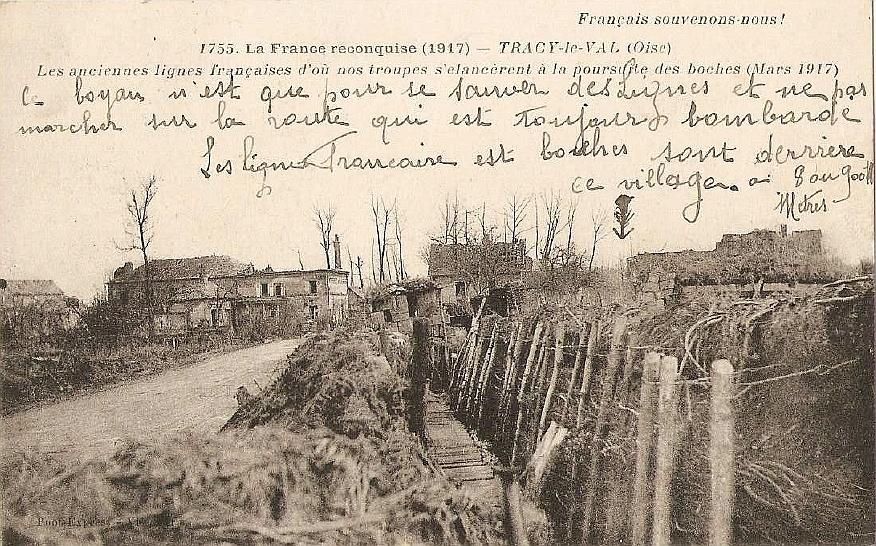 Français souvenons-nous!
1755. La France reconquise (1917) — TRACY-le-VAL (Oise)
Les anciennes lignes françaises d'où nos troupes s'elancèrent à la poursuite des boches (Mars 1917)
ce boyau n'est que pour se sauver des Lignes et ne pas
marcher sur la route qui est Toujours bombardé
Les lignes Francaire est boches sont derrière
ce village. a 8 ou 900
Mètres